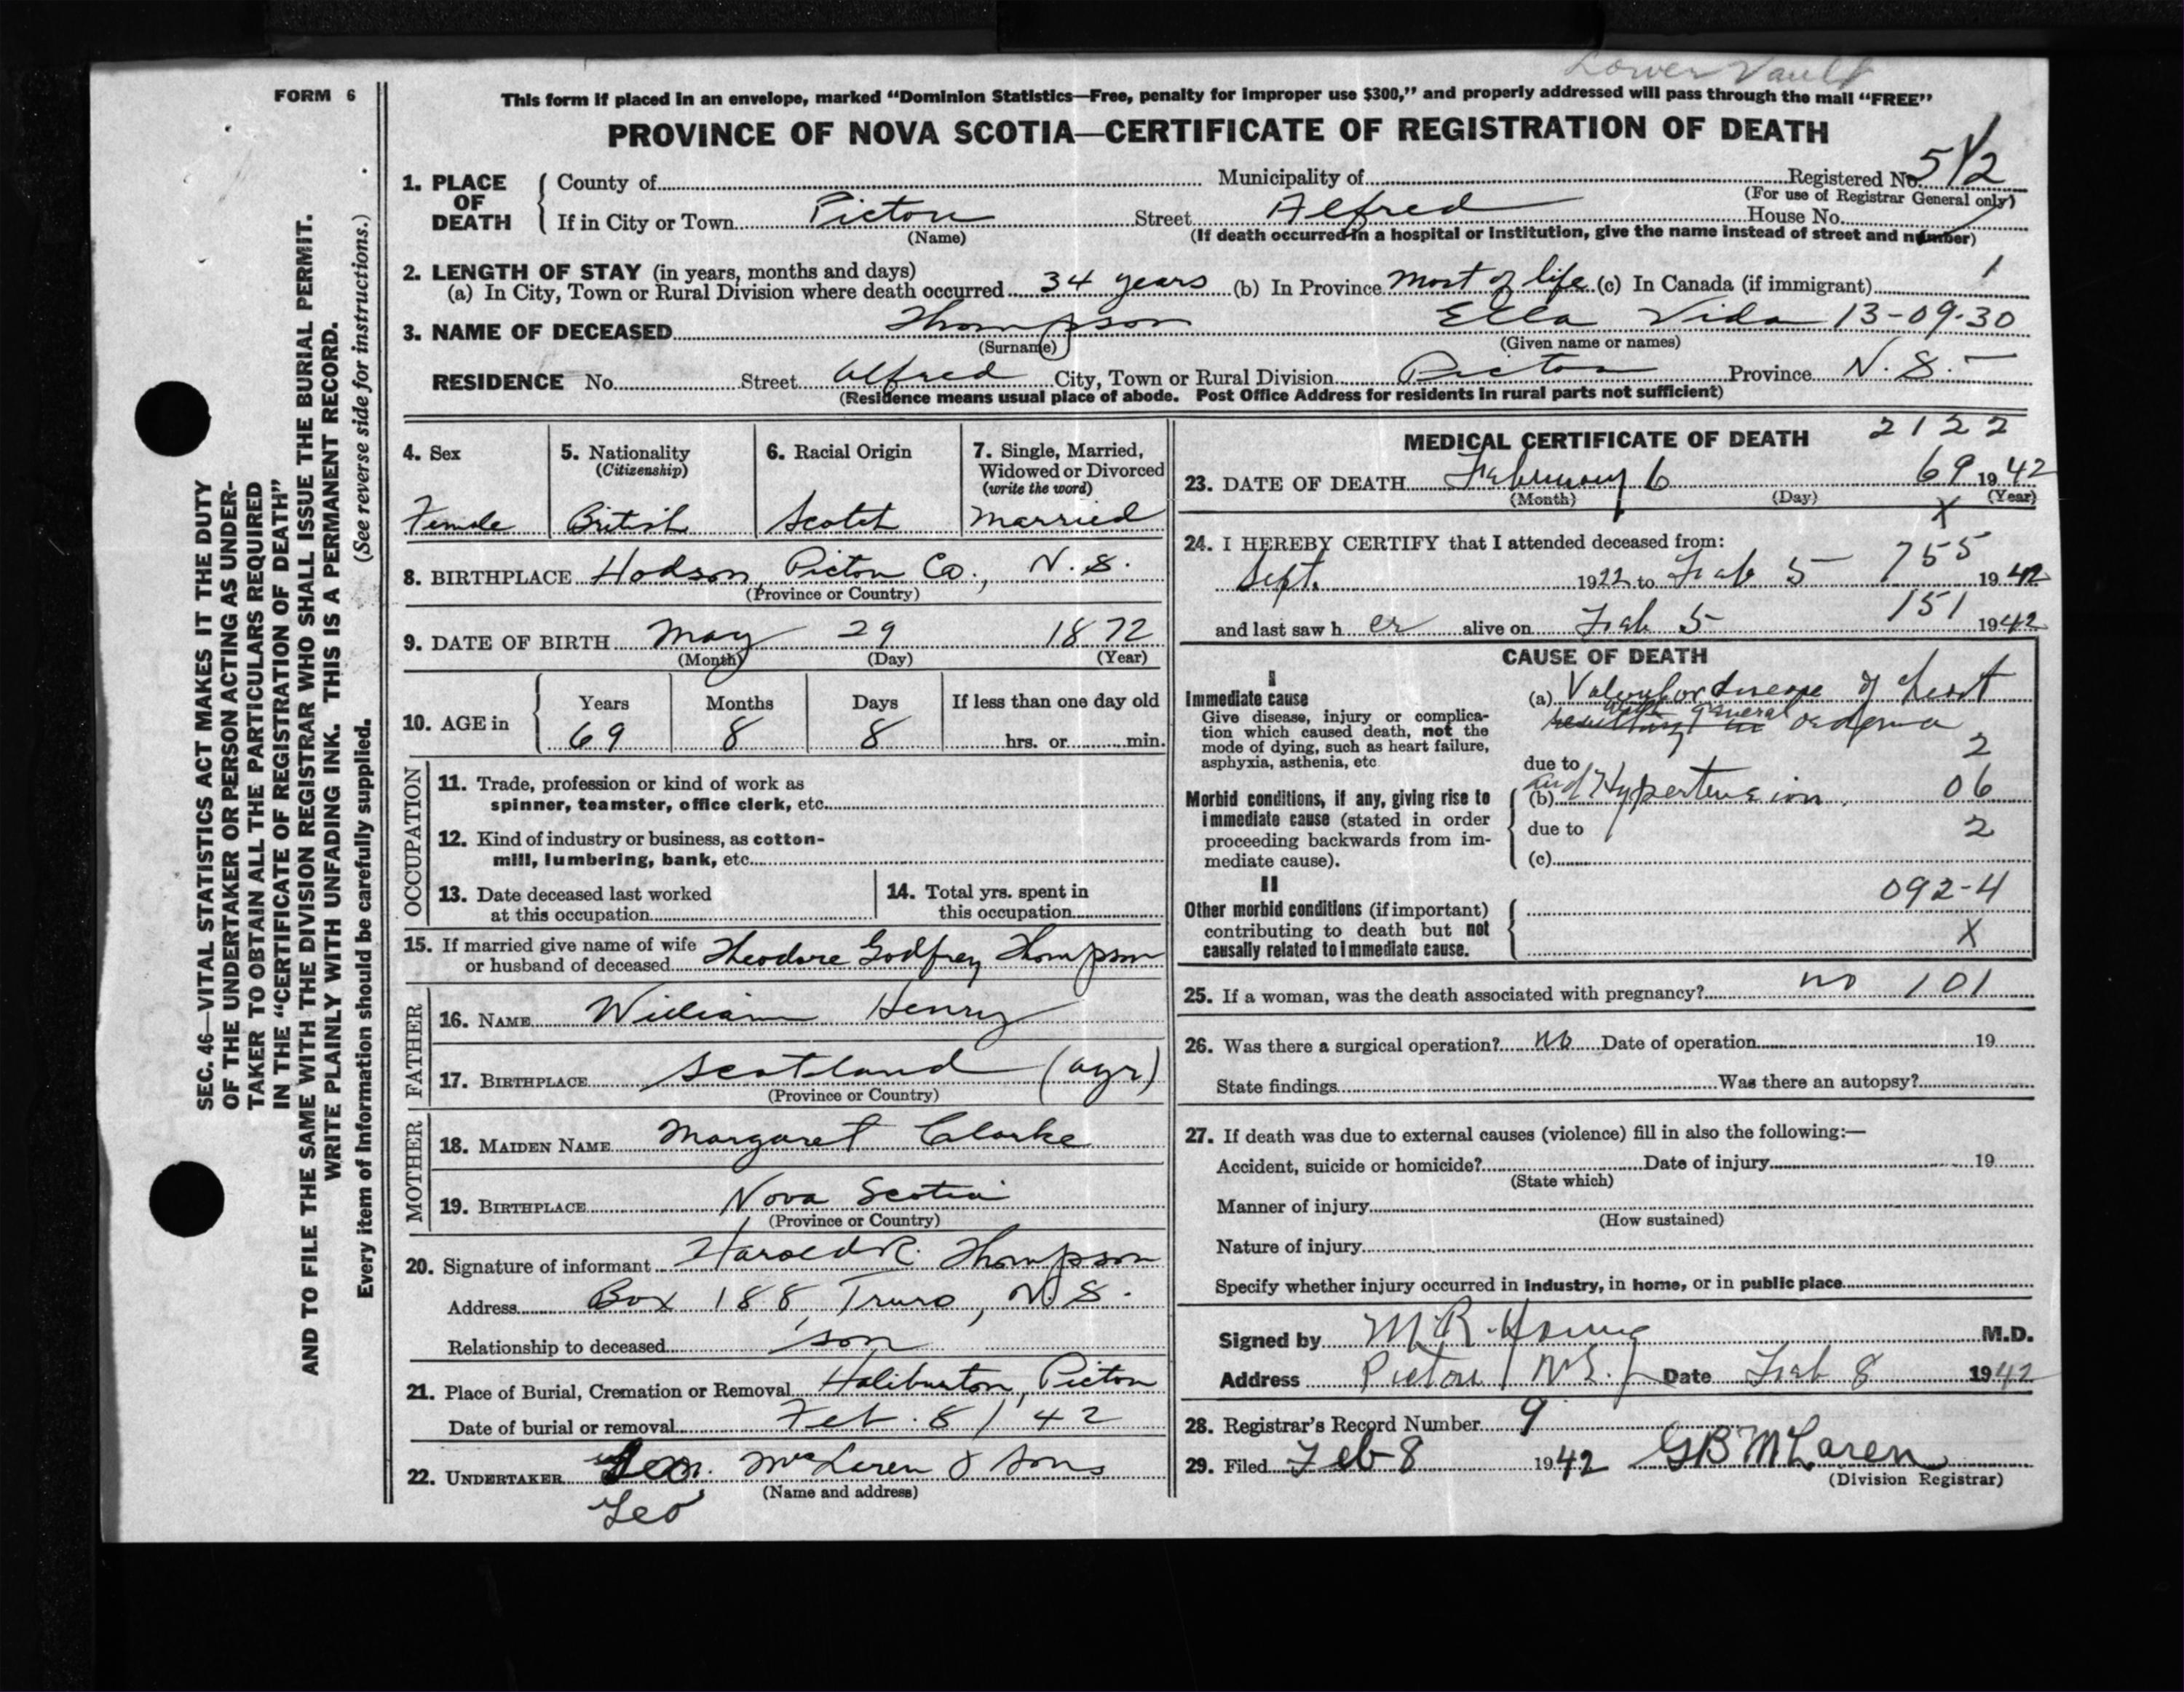 Lower Vault
FORM 6
This form if placed in an envelope, marked “Dominion Statistics—Free, penalty for improper use $300,” and properly addressed will pass through the mail “FREE”
PROVINCE OF NOVA SCOTIA—CERTIFICATE OF REGISTRATION OF DEATH
SEC. 46—VITAL STATISTICS ACT MAKES IT THE DUTY
OF THE UNDERTAKER OR PERSON ACTING AS UNDER-
TAKER TO OBTAIN ALL THE PARTICULARS REQUIRED
IN THE “CERTIFICATE OF REGISTRATION OF DEATH”
AND TO FILE THE SAME WITH THE DIVISION REGISTRAR WHO SHALL ISSUE THE BURIAL PERMIT.
WRITE PLAINLY WITH UNFADING INK. THIS IS A PERMANENT RECORD.
Every item of information should be carefully supplied. (See reverse side for instructions.)
1. PLACE OF DEATH County of Municipality of Registered No. 512
(For use of Registrar General only)
If in City or Town Pictou Street Alfred House No.
(Name) (If death occurred in a hospital or institution, give the name instead of street and number)
2. LENGTH OF STAY (in years, months and days)
(a) In City, Town or Rural Division where death occurred 34 years (b) In Province Most of life (c) In Canada (if immigrant) 1
3. NAME OF DECEASED Thompson Ella Vida 13-09-30
(Surname) (Given name or names)
RESIDENCE No. Street Alfred City, Town or Rural Division Pictou Province N.S.
(Residence means usual place of abode. Post Office Address for residents in rural parts not sufficient)
4. Sex 5. Nationality (Citizenship) 6. Racial Origin 7. Single, Married, Widowed or Divorced (write the word)
Female British Scotch Married
8. BIRTHPLACE Hodson, Pictou Co., N.S.
(Province or Country)
9. DATE OF BIRTH May 29 1872
(Month) (Day) (Year)
10. AGE in Years Months Days If less than one day old
69 8 8 hrs. or min.
OCCUPATION
11. Trade, profession or kind of work as
spinner, teamster, office clerk, etc.
12. Kind of industry or business, as cotton-
mill, lumbering, bank, etc.
13. Date deceased last worked
at this occupation
14. Total yrs. spent in
this occupation
15. If married give name of wife
or husband of deceased Theodore Godfrey Thompson
FATHER
16. NAME William Henry
17. BIRTHPLACE Scotland (Ayr)
(Province or Country)
MOTHER
18. MAIDEN NAME Margaret Clarke
19. BIRTHPLACE Nova Scotia
(Province or Country)
20. Signature of informant Harold R. Thompson
Address Box 188, Truro, N.S.
Relationship to deceased son
21. Place of Burial, Cremation or Removal Haliburton, Pictou
Date of burial or removal Feb. 8/42
22. UNDERTAKER Geo. McLaren & Sons
(Name and address)
Geo
MEDICAL CERTIFICATE OF DEATH 2122
23. DATE OF DEATH February 6 69 1942
(Month) (Day) (Year)
X
24. I HEREBY CERTIFY that I attended deceased from:
Sept. 1922 to Feb 5 755 1942
and last saw her alive on Feb 5 151 1942
CAUSE OF DEATH
I
Immediate cause
Give disease, injury or complica-
tion which caused death, not the
mode of dying, such as heart failure,
asphyxia, asthenia, etc
(a) Valvular disease of heart
resulting in with general oedema
2
due to
Morbid conditions, if any, giving rise to
immediate cause (stated in order
proceeding backwards from im-
mediate cause).
(b) and Hypertension 06
due to 2
(c)
II
Other morbid conditions (if important)
contributing to death but not
causally related to immediate cause.
092-4
X
25. If a woman, was the death associated with pregnancy? no 101
26. Was there a surgical operation? No Date of operation 19
State findings Was there an autopsy?
27. If death was due to external causes (violence) fill in also the following:—
Accident, suicide or homicide? Date of injury 19
(State which)
Manner of injury
(How sustained)
Nature of injury
Specify whether injury occurred in industry, in home, or in public place
Signed by M.R. Young M.D.
Address Pictou N.S. Date Feb 8 1942
28. Registrar's Record Number 9
29. Filed Feb 8 1942 GB McLaren
(Division Registrar)